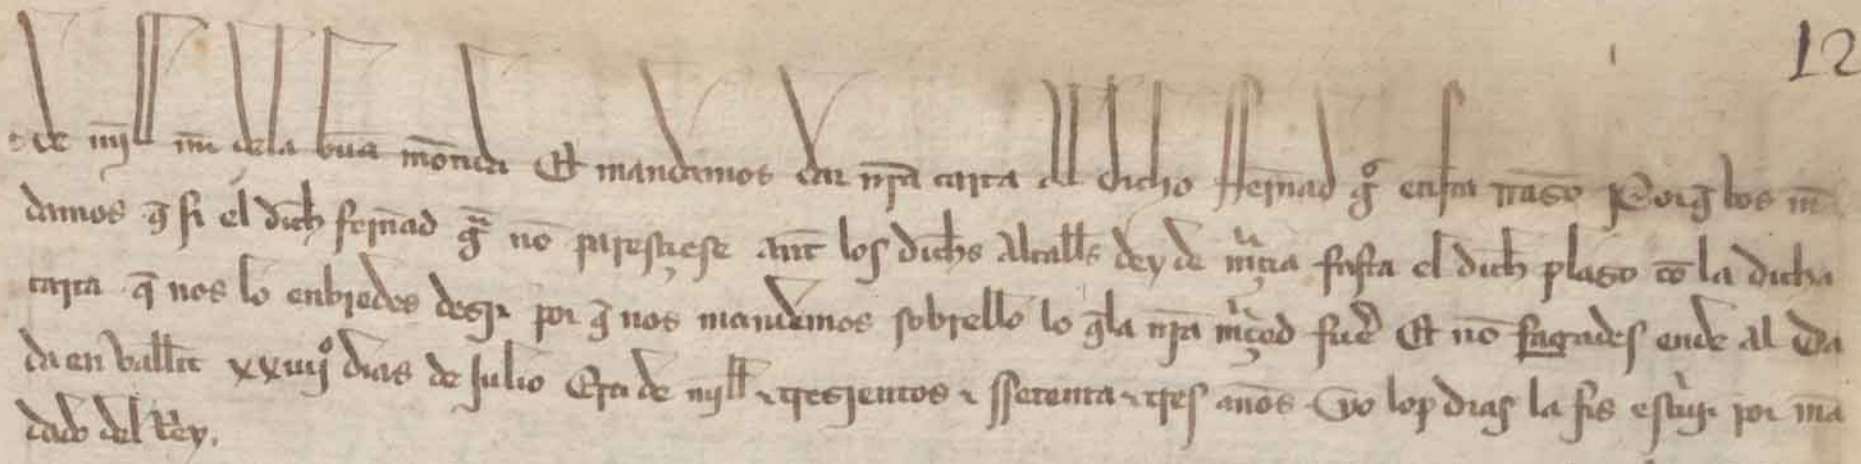 12
de mill mr dela bua moneda Et mandamos dar nra carta al dicho Ffernad gº en esta rrason Por q vos mā
damos q si el dich fernad gº no paresçiese ant los dichs alcalls dey de murçia fasta el dich plaso cō la dicha
carta q nos lo enbiedes desir por q nos mandemos sobrello lo q la nra mrçed fuer Et nō fagades ende al da
da en vallit xxiiijº dias de julio Era de mill τ tresientos τ ssetenta τ tres anos yo lop dias la fis escrivir por mā
dado del Rey.